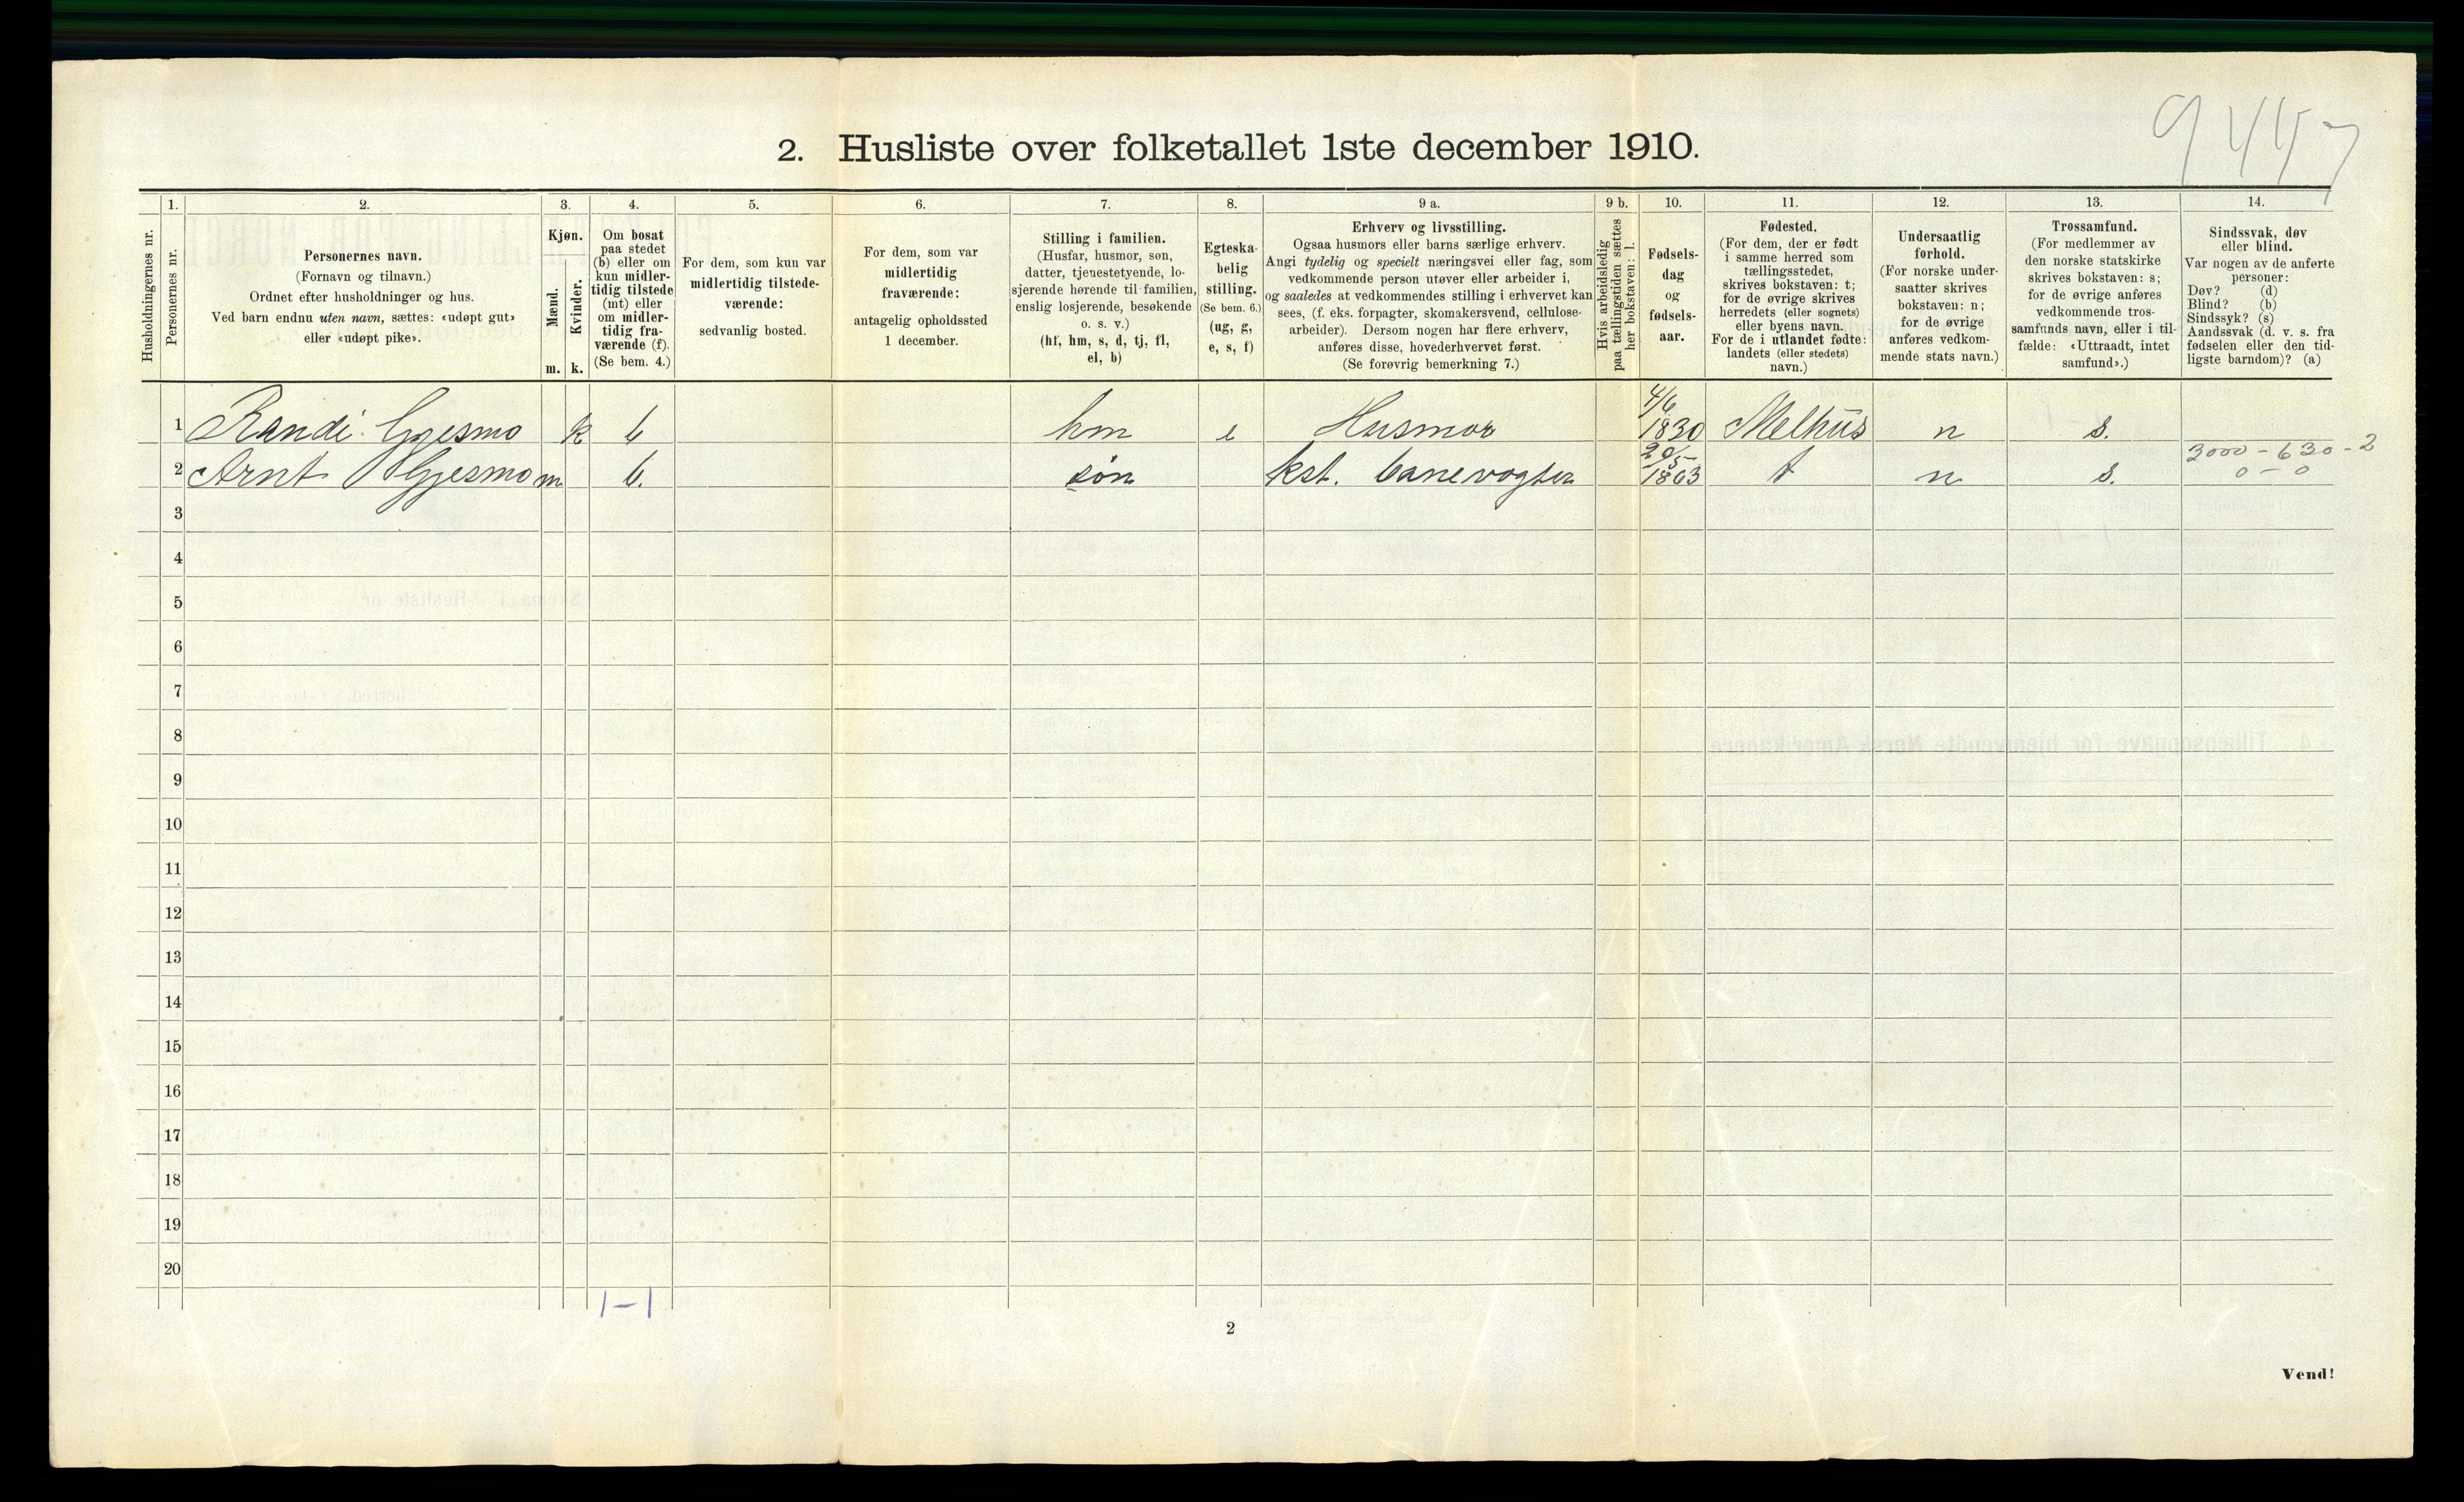 9447
2. Husliste over folketallet 1ste december 1910.
Husholdningernes nr.
1.
Personernes nr.
2.
Personernes navn.
(Fornavn og tilnavn.)
Ordnet efter husholdninger og hus.
Ved barn endnu uten navn, sættes: «udøpt gut»
eller «udøpt pike».
3.
Kjøn.
Mænd.
Kvinder.
m. k.
4.
Om bosat
paa stedet
(b) eller om
kun midler-
tidig tilstede
(mt) eller
om midler-
tidig fra-
værende (f).
(Se bem. 4.)
5.
For dem, som kun var
midlertidig tilstede-
værende:
sedvanlig bosted.
6.
For dem, som var
midlertidig
fraværende:
antagelig opholdssted
1 december.
7.
Stilling i familien.
(Husfar, husmor, søn,
datter, tjenestetyende, lo-
sjerende hørende til familien,
enslig losjerende, besøkende
o. s. v.)
(hf, hm, s, d, tj, fl,
el, b)
8.
Egteska-
belig
stilling.
(Se bem. 6.)
(ug, g,
e, s, f)
9 a.
Erhverv og livsstilling.
Ogsaa husmors eller barns særlige erhverv.
Angi tydelig og specielt næringsvei eller fag, som
vedkommende person utøver eller arbeider i,
og saaledes at vedkommendes stilling i erhvervet kan
sees, (f. eks. forpagter, skomakersvend, cellulose-
arbeider). Dersom nogen har flere erhverv,
anføres disse, hovederhvervet først.
(Se forøvrig bemerkning 7.)
9 b.
Hvis arbeidsledig
paa tællingstiden sættes
her bokstaven: l.
10.
Fødsels-
dag
og
fødsels-
aar.
11.
Fødested.
(For dem, der er født
i samme herred som
tællingsstedet,
skrives bokstaven: t;
for de øvrige skrives
herredets (eller sognets)
eller byens navn.
For de i utlandet fødte:
landets (eller stedets)
navn.)
12.
Undersaatlig
forhold.
(For norske under-
saatter skrives
bokstaven: n;
for de øvrige
anføres vedkom-
mende stats navn.)
13.
Trossamfund.
(For medlemmer av
den norske statskirke
skrives bokstaven: s;
for de øvrige anføres
vedkommende tros-
samfunds navn, eller i til-
fælde: «Uttraadt, intet
samfund».)
14.
Sindssvak, døv
eller blind.
Var nogen av de anførte
personer:
Døv? (d)
Blind? (b)
Sindssyk? (s)
Aandssvak (d. v. s. fra
fødselen eller den tid-
ligste barndom)? (a)
1 Randi Gjesmo k b hm e Husmor 4/6 1830 Melhus n s.
3000 - 630 - 2
2 Arnt Gjesmo m b. søn kst. banevogter 1863 t n s. 0 - 0
3
4
5
6
7
8
9
10
11
12
13
14
15
16
17
18
19
20
1-1
2
Vend!